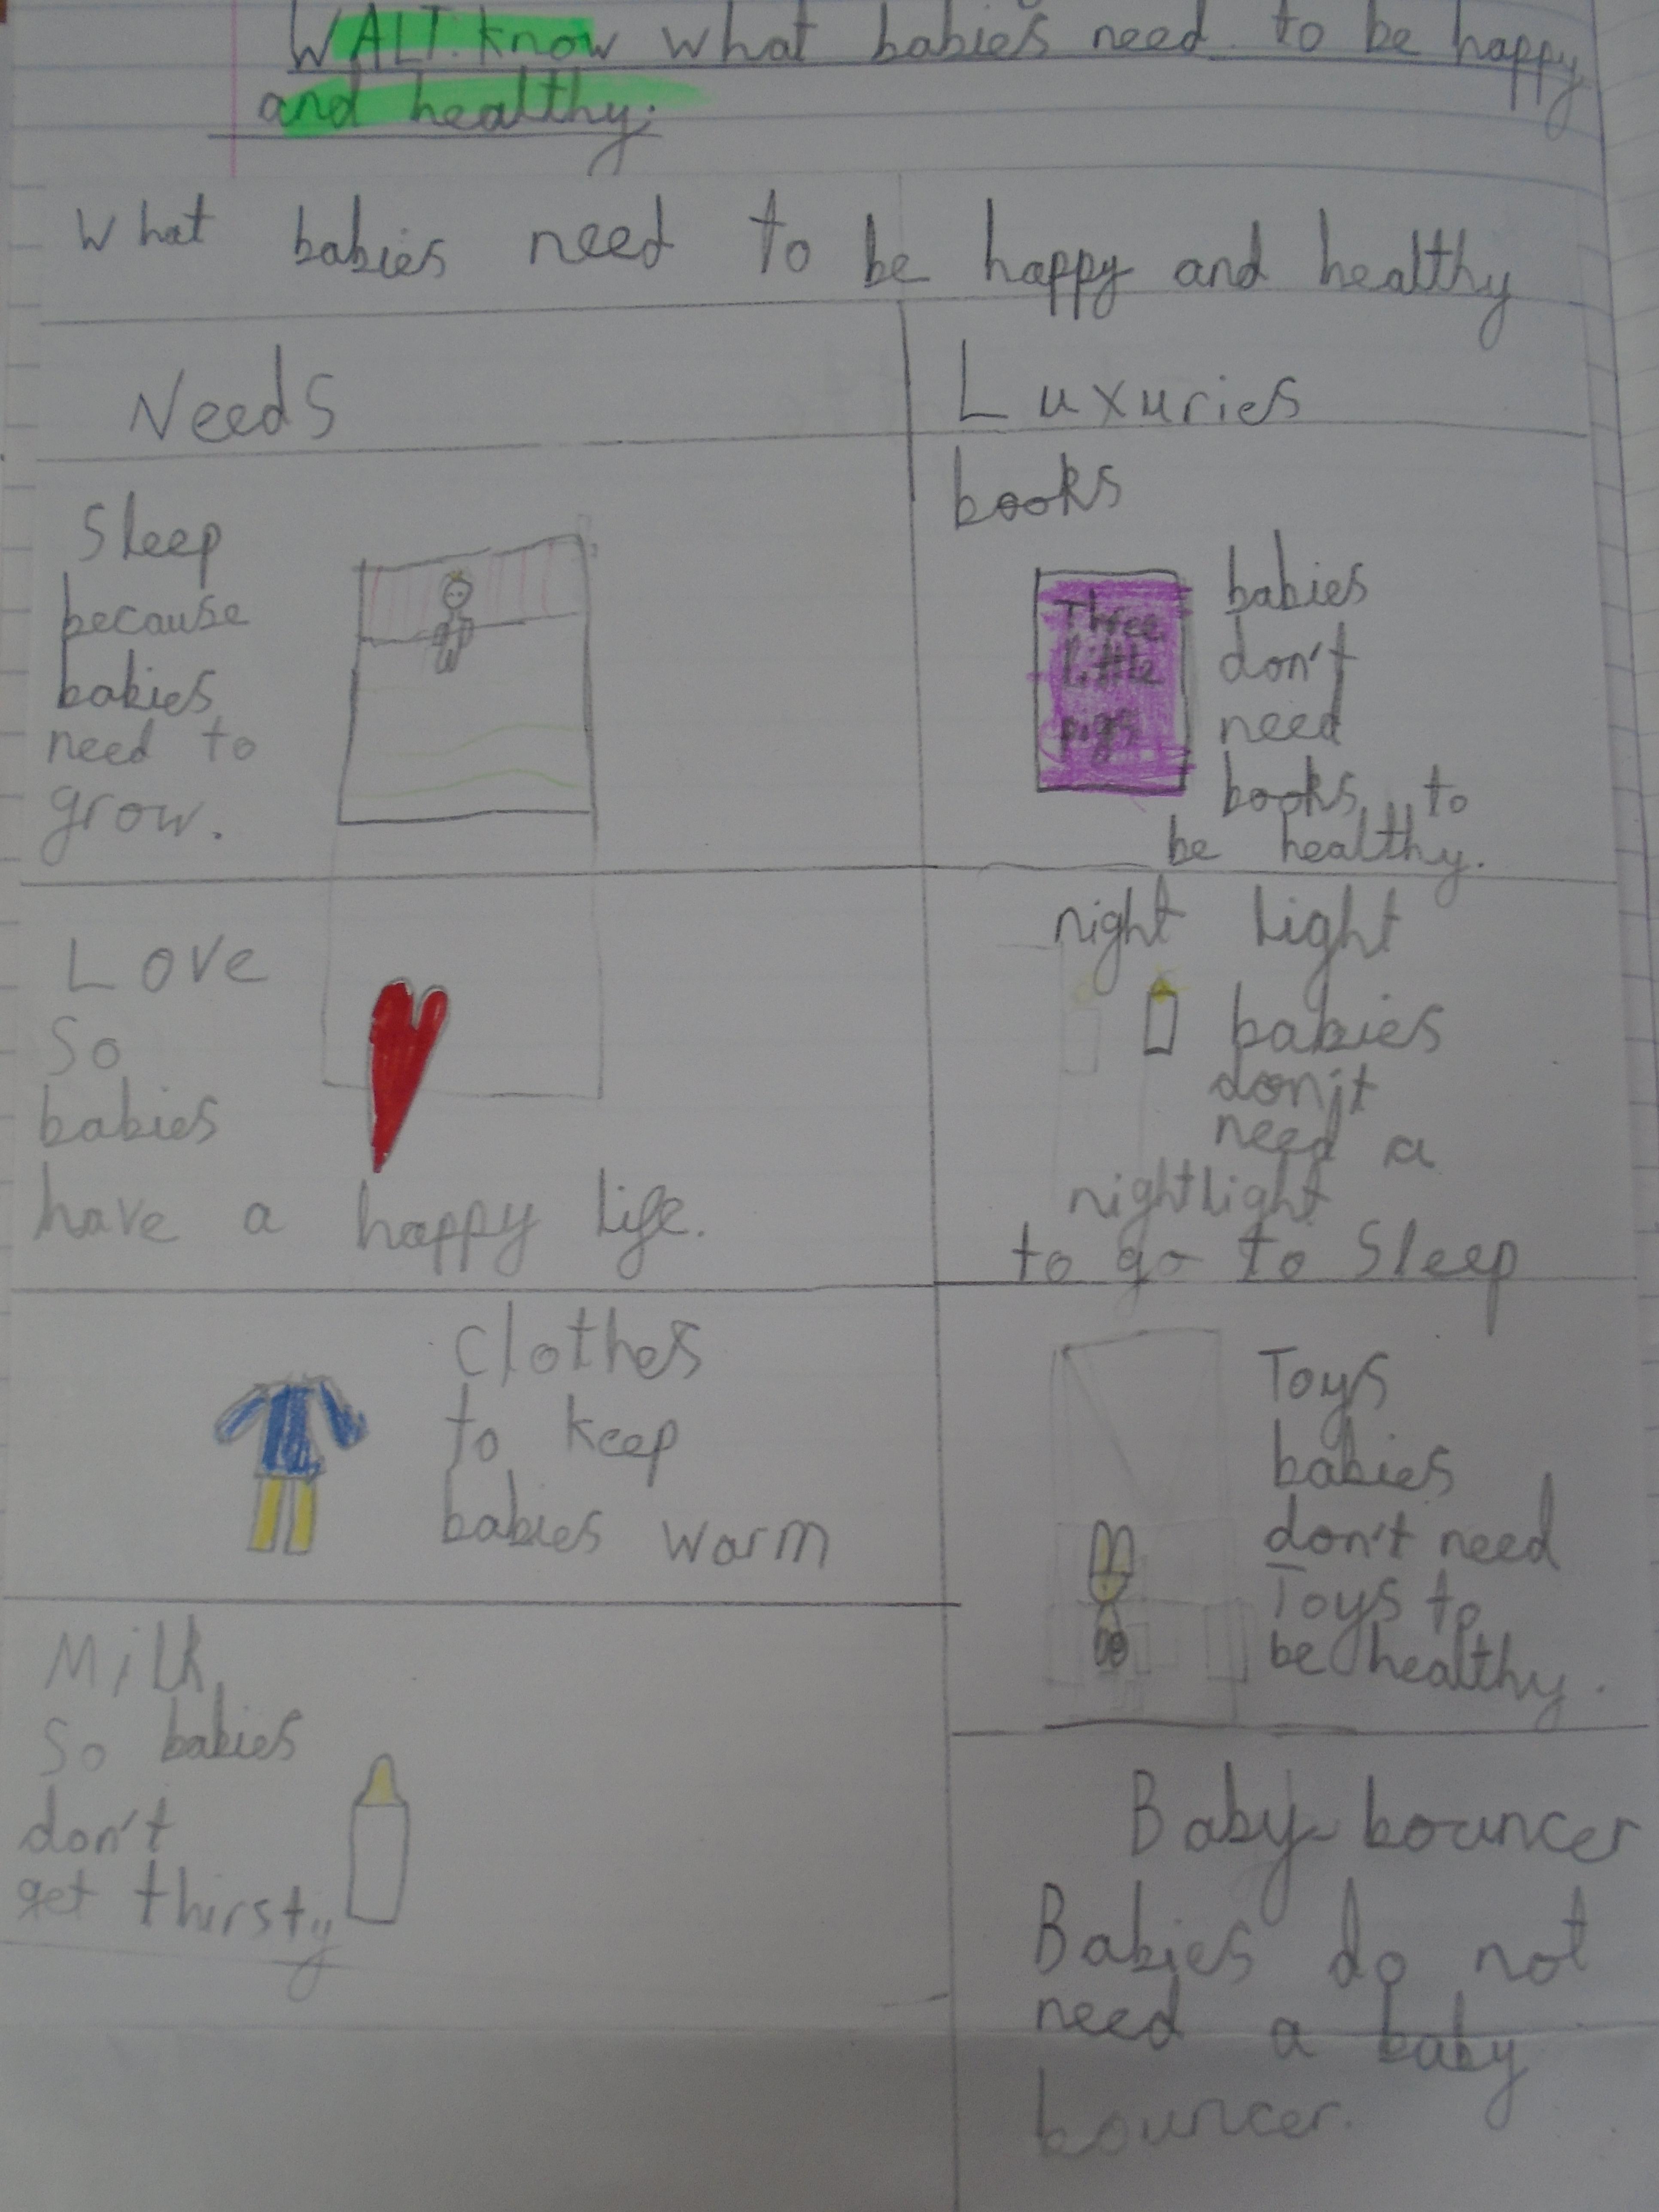 WALT. know what babies need to be happy
and healthy.
What babies need to be happy and healthy
Needs
Luxuries
Sleep
because
babies
need to
grow.
books
Three
Little
pigs
babies
don't
need
books to
be healthy.
Love
So
babies
have a happy life.
night light
babies
don't
need a
nightlight
to go to Sleep
Clothes
to keep
babies warm
Toys
babies
don't need
Toys to
be healthy.
Milk
So babies
don't
get thirsty
Baby bouncer
Babies do not
need a baby
bouncer.